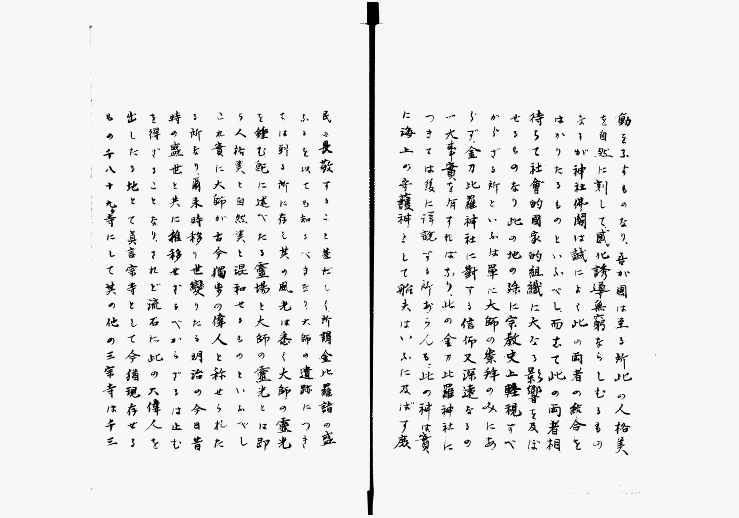 動をなすものなり、吾が國は至る所此の人格美
を自然に刻して感化誘導無窮ならしむるもの
なるが神社佛閣は誠によく此の両者の結合を
はかりたるものといふべし而して此の両者相
待ちて社會的國家的組織に大なる影響を及ぼ
せるものなり此の地の殊に宗教史上輕視すべ
からざる所といふは單に大師の崇拝のみにあ
らず、金刀比羅神社に對する信仰又深遠なるの
一大事實を有すればなり、此の金刀比羅神社に
つきては後に詳説する所あらんも、此の神は實
に海上の守護神として船夫はいふに及ばず廣
民の畏敬すること甚だしく所謂金比羅詣の盛
なるを以ても知るべきなり大師の遺跡につき
ては到る所に存し其の風光は悉く大師の靈光
を鍾む既に述べたる靈場と大師の靈光とは即
ち人格美と自然美と混和せるものといふべし
これ實に大師が古今獨歩の偉人と称せられた
る所なり、爾来時移り世變りたる明治の今日昔
時の盛世と共に推移せざるべからざるは止む
を得ざることなり、されど流石に此の大偉人を
出したる地とて眞言宗寺として今猶現存せる
もの千八十九寺にして其の他の三宗寺は千三